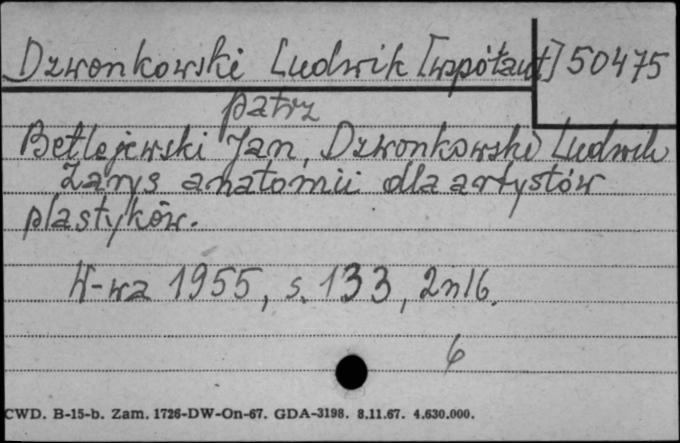 Dzwonkowski Ludwik [współaut] 50475
patrz
Betlejewski Jan, Dzwonkowski Ludwik
Zarys anatomii dla artystów
plastyków.
W-wa 1955, s. 133, 2nlb.
6
CWD. B-15-b. Zam. 1726-DW-On-67. GDA-3198. 8.11.67. 4.630.000.